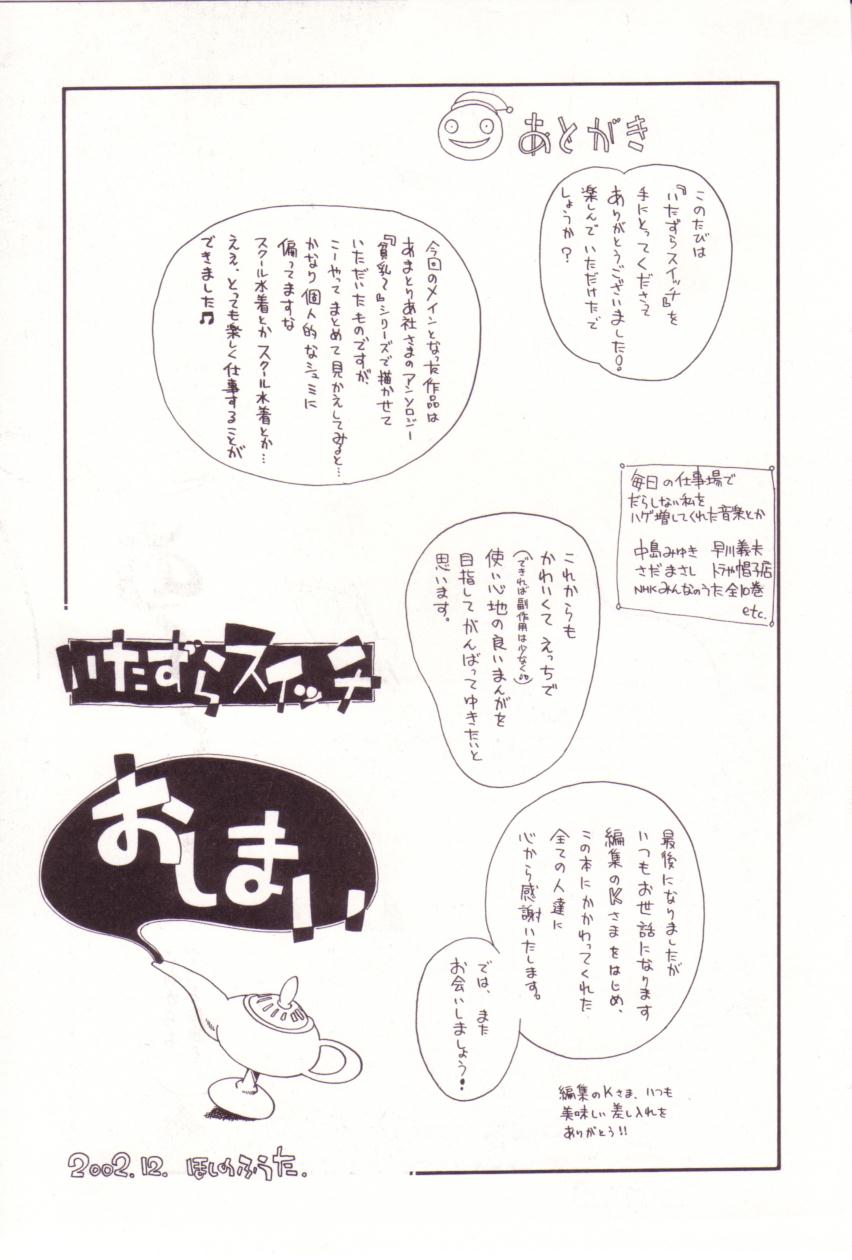 あとがき
このたびは
『いたずらスイッチ』を
手にとってくださって
ありがとうございました。
楽しんでいただけたで
しょうか?
今回のメインとなった作品は
あまとりあ社さまのアンソロジー
『貧乳〜』シリーズで描かせて
いただいたものですが、
こーやってまとめて見かえしてみると…
かなり個人的なシュミに
偏ってますな
スクール水着とかスクール水着とか…
ええ、とっても楽しく仕事することが
できました♫
毎日の仕事場で
だらしない私を
ハゲ増してくれた音楽とか
中島みゆき 早川義夫
さだまさし トラや帽子店
NHKみんなのうた全10巻
etc.
これからも
かわいくてえっちで
(できれば副作用は少なく)
使い心地の良いまんがを
目指してがんばってゆきたいと
思います。
いたずらスイッチ
おしまい
最後になりましたが
いつもお世話になります
編集のKさまをはじめ、
この本にかかわってくれた
全ての人達に
心から感謝いたします。
では、また
お会いしましょう!
編集のKさま、いつも
美味しい差し入れを
ありがとう!!
2002.12. ほしのふうた.